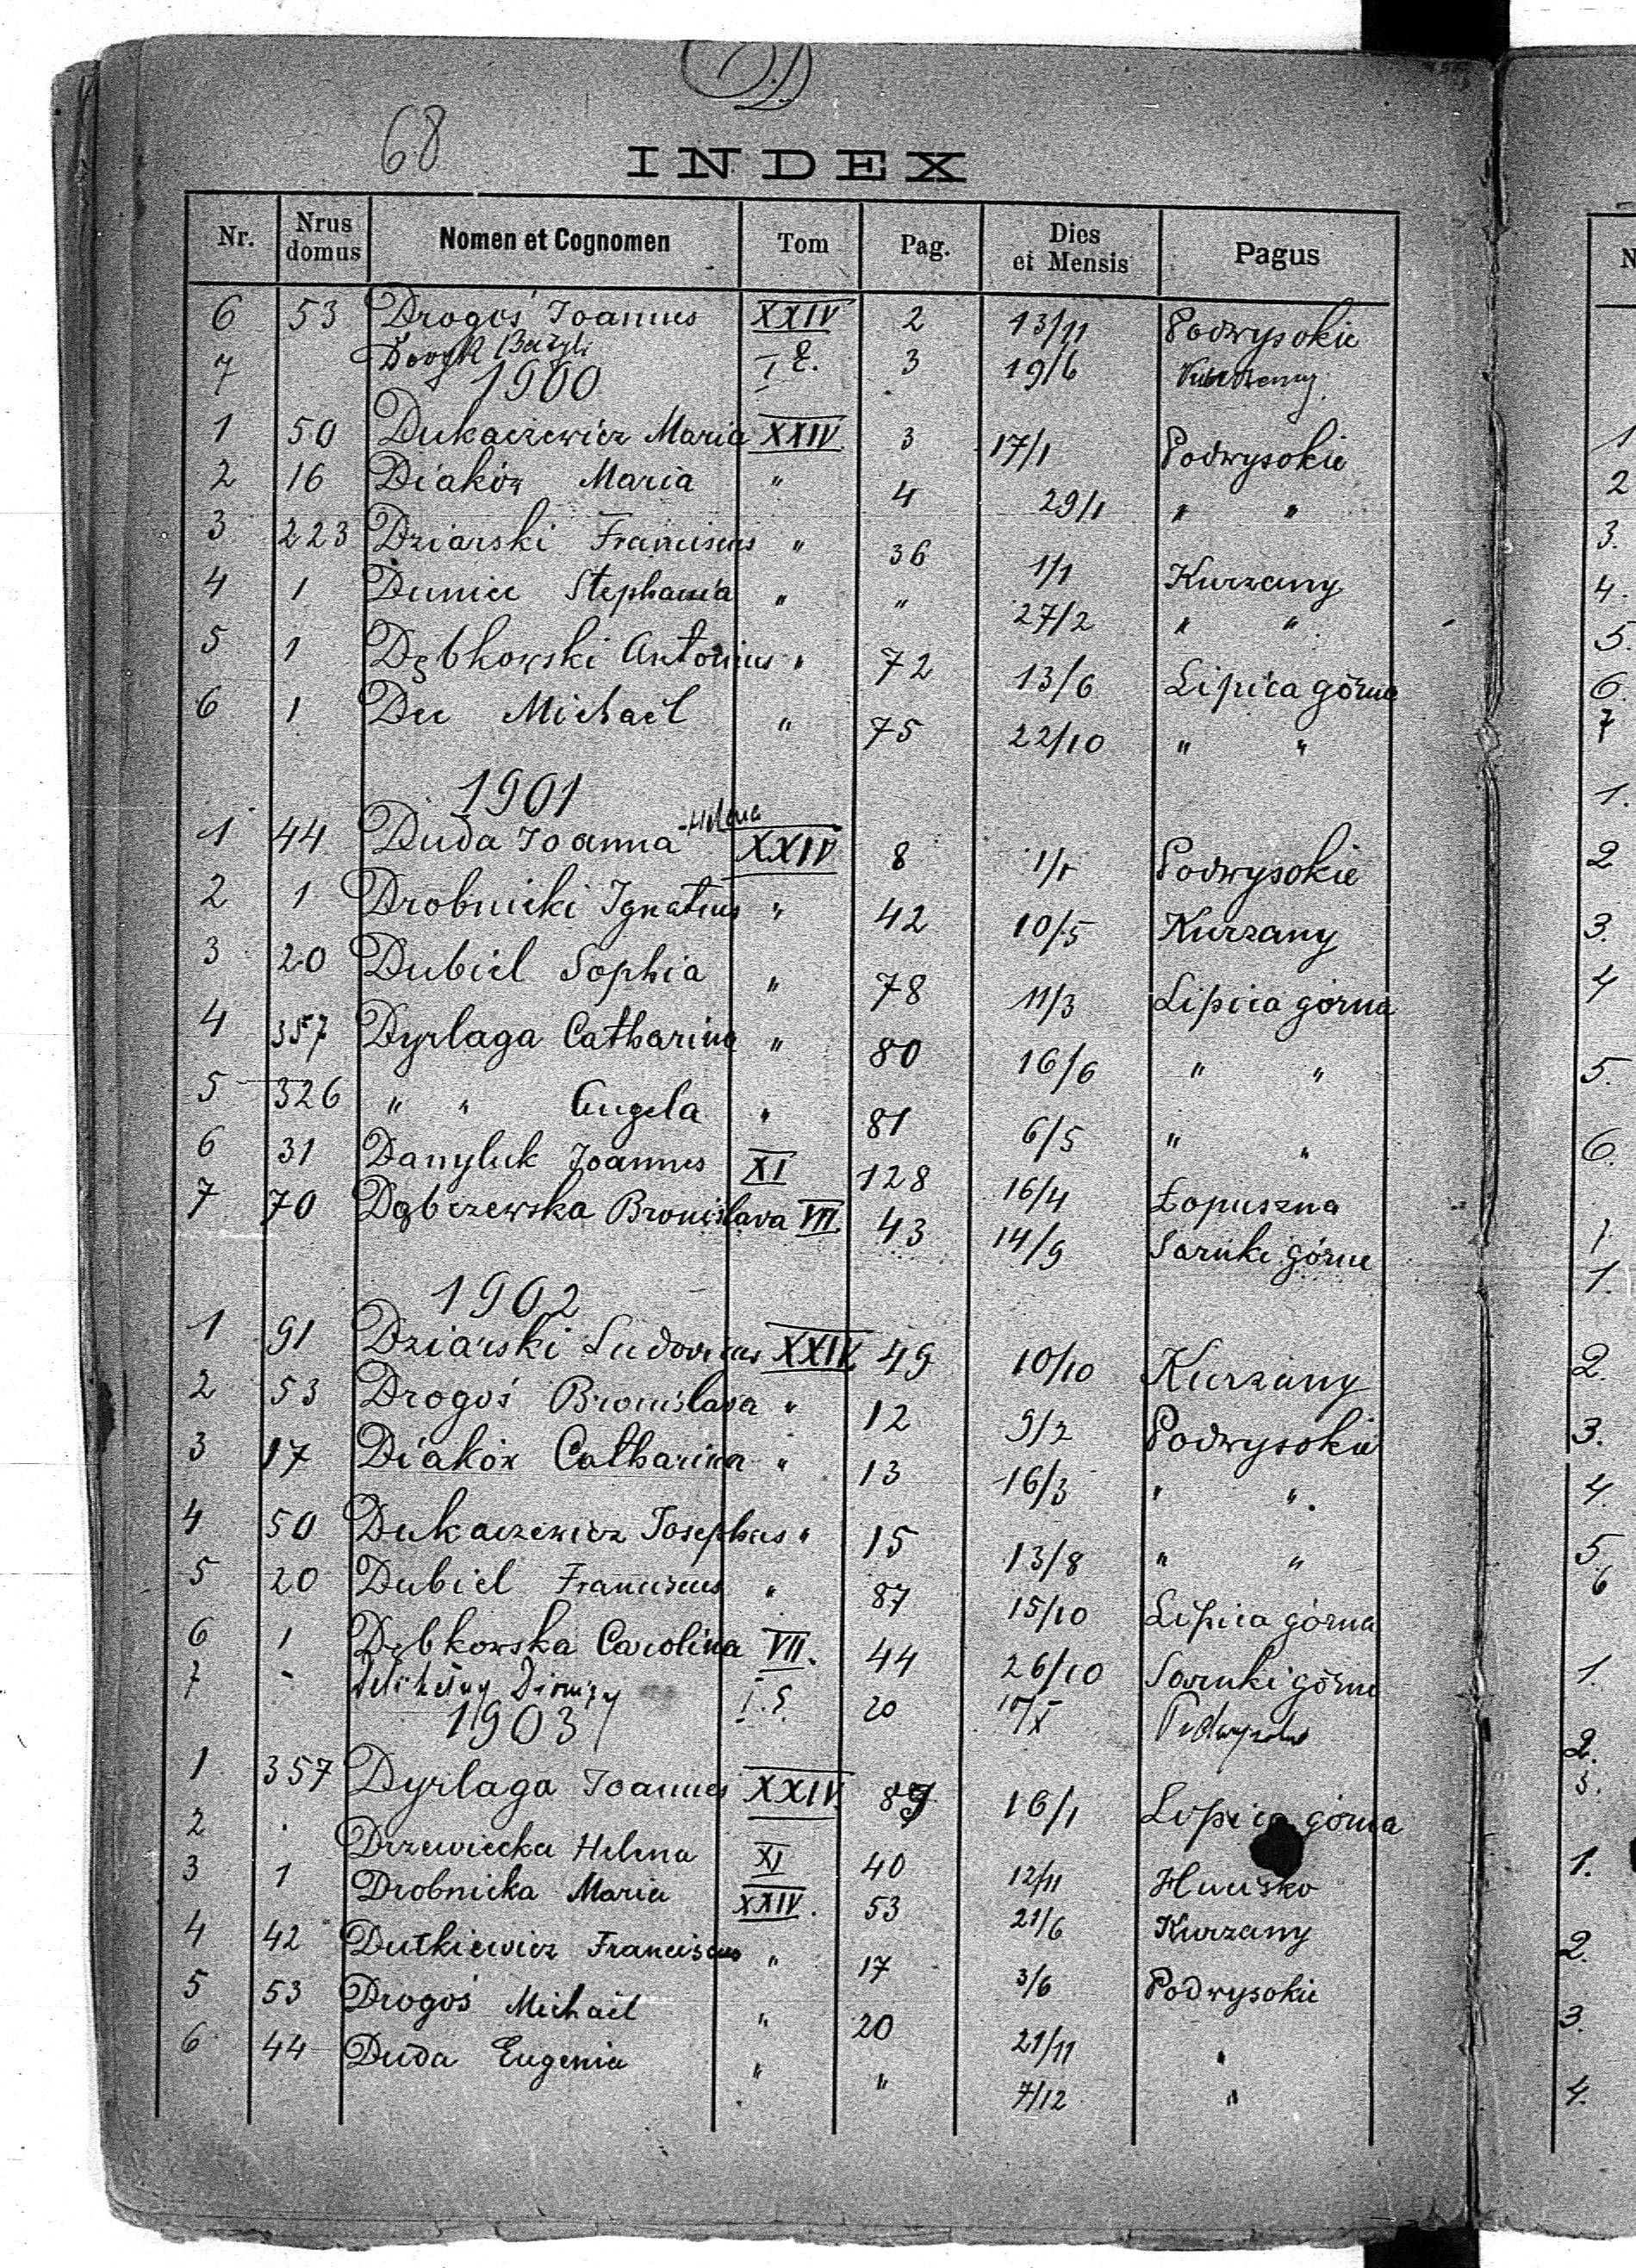 D
68
INDEX
Nr. Nrus domus Nomen et Cognomen Tom Pag. Dies et Mensis Pagus
6 53 Drogoś Joannes XXIV 2 13/11 Podwysokie
7 Bazyli I 3 19/6
1900
1 50 Dukaczewicz Maria XXIV 3 17/1 Podwysokie
2 16 Diaków Maria " 4 29/1 " "
3 223 Dziarski Franciscus " 36 1/1 Kurzany
4 1 Duniec Stephania " " 27/2 " "
5 1 Dębkowski Antonius " 72 13/6 Lipica górna
6 1 Dec Michaël " 75 22/10 " "
1901
1 44 Duda Joanna-Helena XXIV 8 1/1 Podwysokie
2 1 Drobnicki Ignatius " 42 10/5 Kurzany
3 20 Dubiel Sophia " 78 11/3 Lipica górna
4 357 Dyrlaga Catharina " 80 16/6 " "
5 326 " " Angela " 81 6/5 " "
6 31 Danyluk Joannes XI 128 16/4 Łopuszna
7 70 Dąbczewska Bronislava VII. 43 14/9 Sarnki górne
1902
1 91 Dziarski Ludovicus XXIV 49 10/10 Kurzany
2 53 Drogoś Bronislava " 12 9/2 Podwysokie
3 17 Diaków Catharina " 13 16/3 " ".
4 50 Dukaczewicz Josephus " 15 13/8 " "
5 20 Dubiel Franciscus " 87 15/10 Lipica górna
6 1 Dębkowska Carolina VII. 44 26/10 Sarnki górne
7 - Dionizy I. 20
1903
1 357 Dyrlaga Joannes XXIV 89 16/1 Lipica górna
2 . Drzewiecka Helena XI 40 12/11 Hucisko
3 1 Drobnicka Maria XXIV. 53 21/6 Kurzany
4 42 Dutkiewicz Franciscus " 17 3/6 Podwysokie
5 53 Drogoś Michaël " 20 21/11 "
6 44 Duda Eugenia " " 7/12 "